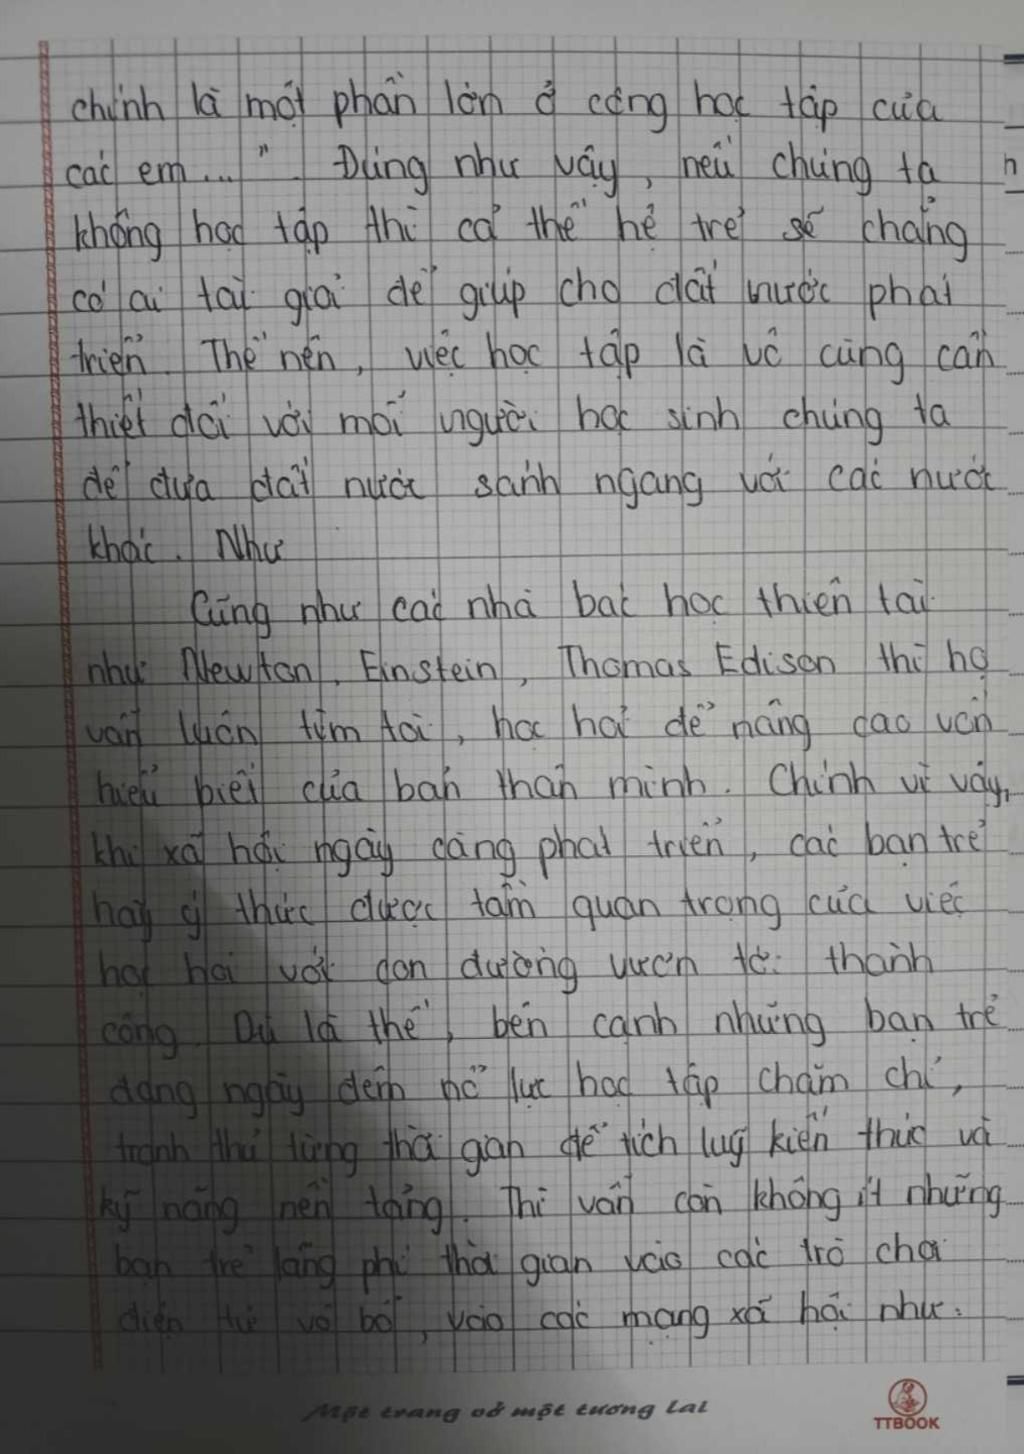 chính là một phần lớn ở công học tập của
các em..." Đúng như vậy, nếu chúng ta
không học tập thì cả thế hệ trẻ sẽ chẳng
có ai tài giỏi để giúp cho đất nước phát
triển. Thế nên, việc học tập là vô cùng cần
thiết đối với mỗi người học sinh chúng ta
để đưa đất nước sánh ngang với các nước
khác. Như
Cũng như các nhà bác học thiên tài
như Newton, Einstein, Thomas Edison thì họ
vẫn luôn tìm tòi, học hỏi để nâng cao vốn
hiểu biết của bản thân mình. Chính vì vậy,
khi xã hội ngày càng phát triển, các bạn trẻ
hãy ý thức được tầm quan trọng của việc
học hỏi với con đường vươn tới thành
công. Dù là thế, bên cạnh những bạn trẻ
đang ngày đêm nỗ lực học tập chăm chỉ,
tranh thủ từng thời gian để tích luỹ kiến thức và
kỹ năng nền tảng. Thì vẫn còn không ít những
bạn trẻ lãng phí thời gian vào các trò chơi
điện tử vô bổ, vào các mạng xã hội như:
Một trang vở một tương lai
TTBOOK